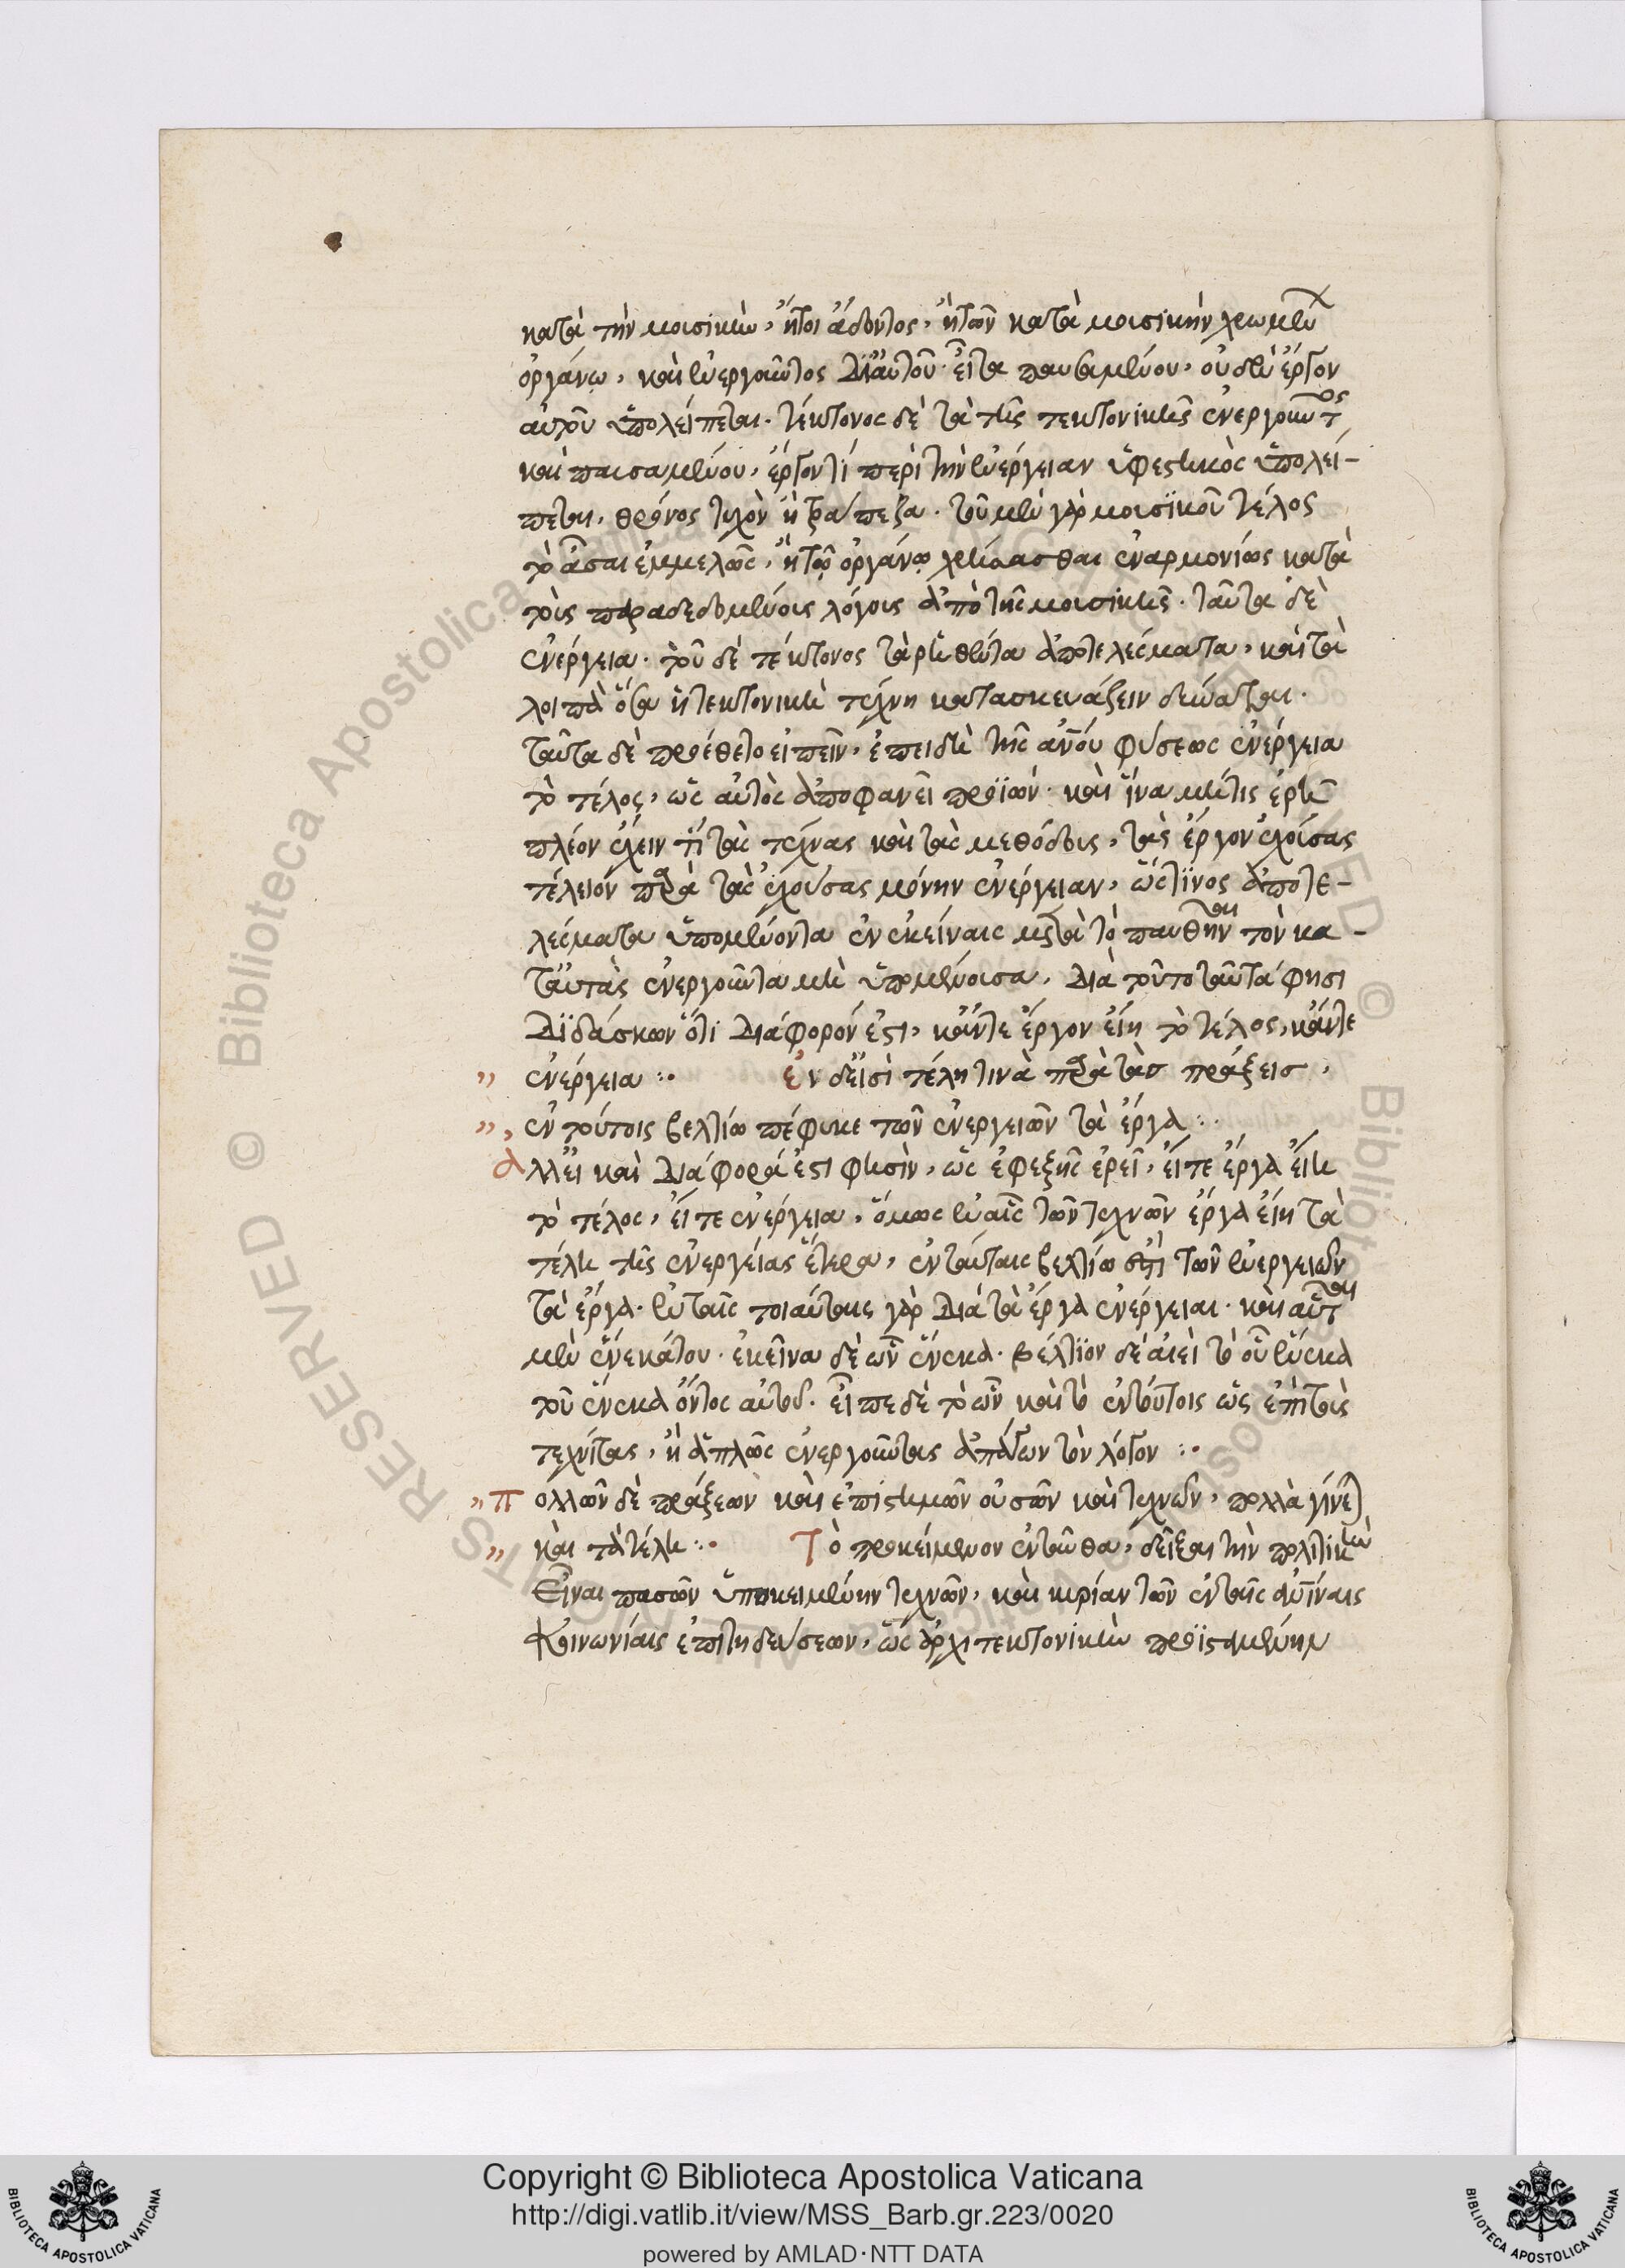 κατὰ τὴν μουσικὴν, ἤτοι ἄδοντος, ἢ τῶν κατὰ μουσικὴν χρωμένου
ὀργάνω, καὶ ἐνεργοῦντος δι' αὐτοῦ. εἶτα παυσαμένου, οὐδὲν ἔργον
αὐτοῦ ὑπολείπεται. τέκτονος δὲ τὰ τῆς τεκτονικῆς ἐνεργοῦντος
καὶ παυσαμένου, ἔργον τί περὶ τὴν ἐνέργειαν ὑφεστηκὸς ὑπολεί-
πεται, θρόνος τυχὸν ἢ τράπεζα. τοῦ μὲν γὰρ μουσικοῦ τέλος
τὸ ἆσαι ἐμμελῶς, ἢ τῶ ὀργάνω χρήσασθαι ἐναρμονίως κατὰ
τοῖς παραδεδομένοις λόγοις ἀπὸ τῆς μουσικῆς. ταῦτα δὲ
ἐνέργεια. τοῦ δὲ τέκτονος τὰ ῥηθέντα ἀποτελέσματα, καὶ τὰ
λοιπὰ ὅσα ἡ τεκτονικὴ τέχνη κατασκευάζειν δύναται.
ταῦτα δὲ προέθετο εἰπεῖν, ἐπειδὴ τῆς ἀνου φύσεως ἐνέργεια
τὸ τέλος, ὡς αὐτὸς ἀποφανεῖ προϊών. καὶ ἵνα μήτις ἐρῆ
πλέον ἔχειν τι τὰς τέχνας καὶ τὰς μεθόδους, τὰς ἔργον ἐχούσας
τέλειόν παρὰ τὰς ἐχούσας μόνην ἐνέργειαν, ὥς τινος ἀποτε-
λέσματα ὑπομένοντα ἐν ἐκείναις μετὰ τὸ παυθῆναι τὸν κα-
τ' αὐτὰς ἐνεργοῦντα μὴ ὑπομένουσα. διὰ τοῦτο ταῦτά φησι
διδάσκων ὅτι διάφορόν ἐστι, κἄντε ἔργον εἴη τὸ τέλος, κἄντε
" ἐνέργεια :· ἐν δεῖσὶ τέλη τινὰ παρὰ τὰς πράξεις,
", ἐν τούτοις βελτίω πέφυκε τῶν ἐνεργειῶν τὰ ἔργα :·
ἀλλ' εἰ καὶ διαφορά ἐστι φησὶν, ὡς ἐφεξῆς ἐρεῖ, εἴτε ἔργα εἴη
τὸ τέλος, εἴτε ἐνέργεια, ὅμως ἐν αἷς τῶν τεχνῶν ἔργα εἴη τὰ
τέλη τῆς ἐνεργείας ἕτερα, ἐν ταύταις βελτίω ἐστὶ τῶν ἐνεργειῶν
τὰ ἔργα. ἐν ταῖς τοιαύταις γὰρ διὰ τὰ ἔργα ἐνέργειαι. καὶ αὗται
μὲν ἕνεκά του. ἐκεῖνα δὲ ὧν ἕνεκα. βέλτιον δὲ αἰεὶ τὸ οὗ ἕνεκα
τοῦ ἕνεκα ὄντος αὐτοῦ. εἶπε δὲ τὸ ὧν καὶ τὸ ἐν τούτοις ὡς ἐπὶ τοὺς
τεχνίτας, ἢ ἁπλῶς ἐνεργοῦντας ἀπάγων τὸν λόγον :·
" πολλῶν δὲ πράξεων καὶ ἐπιστημῶν οὐσῶν καὶ τεχνῶν, πολλὰ γίνεται
" καὶ τὰ τέλη :· Τὸ προκείμενον ἐνταῦθα, δεῖξαι τὴν πολιτικὴν
Εἶναι πασῶν ὑποκειμένην τεχνῶν, καὶ κυρίαν τῶν ἐν ταῖς ἀνίναις
Κοινωνίαις ἐπιτηδεύσεων, ὡς ἀρχιτεκτονικὴν προϊσταμένην
Copyright © Biblioteca Apostolica Vaticana
http://digi.vatlib.it/view/MSS_Barb.gr.223/0020
powered by AMLAD·NTT DATA